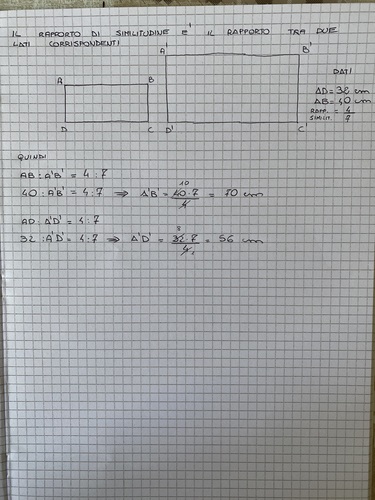 IL RAPPORTO DI SIMILITUDINE E' IL RAPPORTO TRA DUE
LATI CORRISPONDENTI
A' B'
A B
D C D' C'
DATI
AD = 32 cm
AB = 40 cm
RAPP. SIMILIT. = 4/7
QUINDI
AB : A'B' = 4 : 7
40 : A'B' = 4 : 7 ⇒ A'B' = 40·7/4 = 70 cm
10
AD : A'D' = 4 : 7
32 : A'D' = 4 : 7 ⇒ A'D' = 32·7/4 = 56 cm
8
1